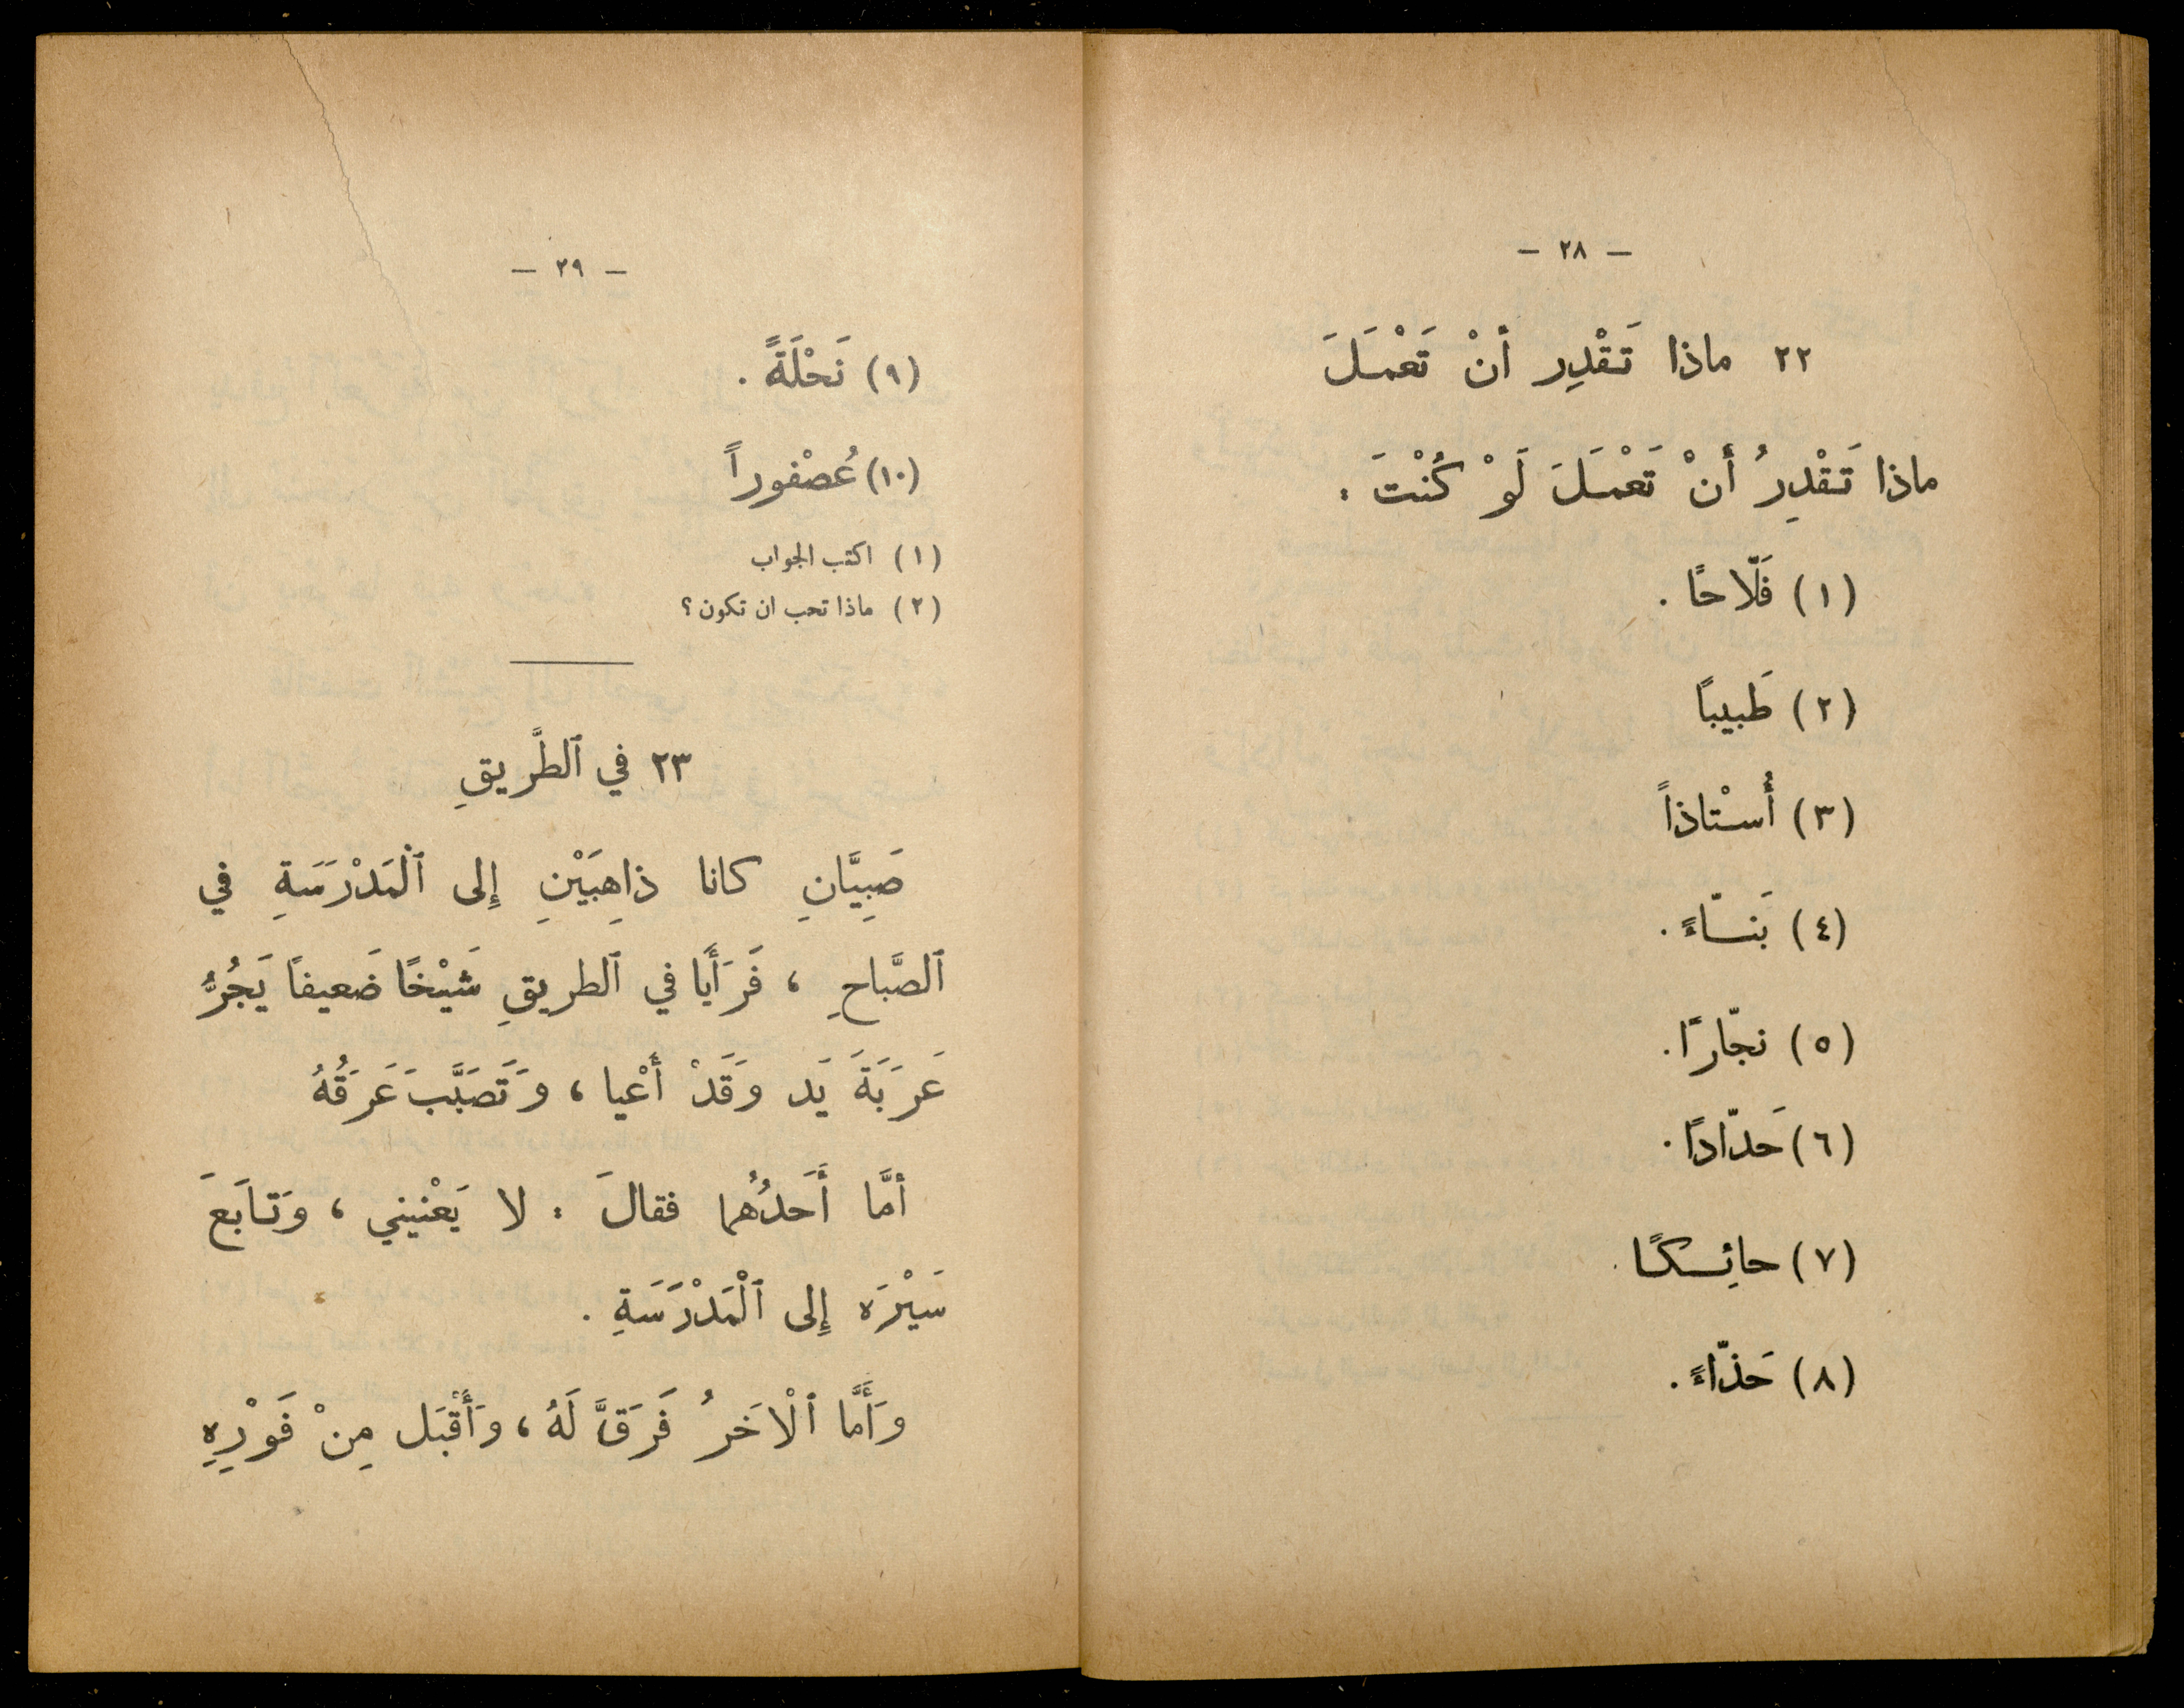 — ٢٨ —
٢٢ ماذا تَقْدِر أنْ تَعْمَلَ
ماذا تَقْدِرُ أَنْ تَعْمَلَ لَوْ كُنْتَ :
(١) فَلّاحًا .
(٢) طَبيبًا
(٣) أُسْتاذاً
(٤) بَنّاءً .
(٥) نجّارًا .
(٦) حَدّادًا .
(٧) حائِكًا .
(٨) حَذّاءً .
— ٢٩ —
(٩) نَحْلَةً .
(١٠) عُصْفوراً
(١) اكتب الجواب
(٢) ماذا تحب ان تكون ؟
٢٣ في ٱلطَّريقِ
صَبِيَّانِ كانا ذاهِبَيْنِ إِلى ٱلْمَدْرَسَةِ في
ٱلصَّباحِ ، فَرَأَيا في ٱلطريقِ شَيْخًا ضَعيفاً يَجُرُّ
عَرَبَةَ يَد وَقَدْ أَعْيا ، وَتَصَبَّبَ عَرَقُهُ
أمَّا أَحَدُهُما فقالَ : لا يَعْنيني ، وَتابَعَ
سَيْرَه إِلى ٱلْمَدْرَسَةِ .
وَأَمَّا ٱلْاخَرُ فَرَقَّ لَهُ ، وَأَقْبَل مِنْ فَوْرِهِ